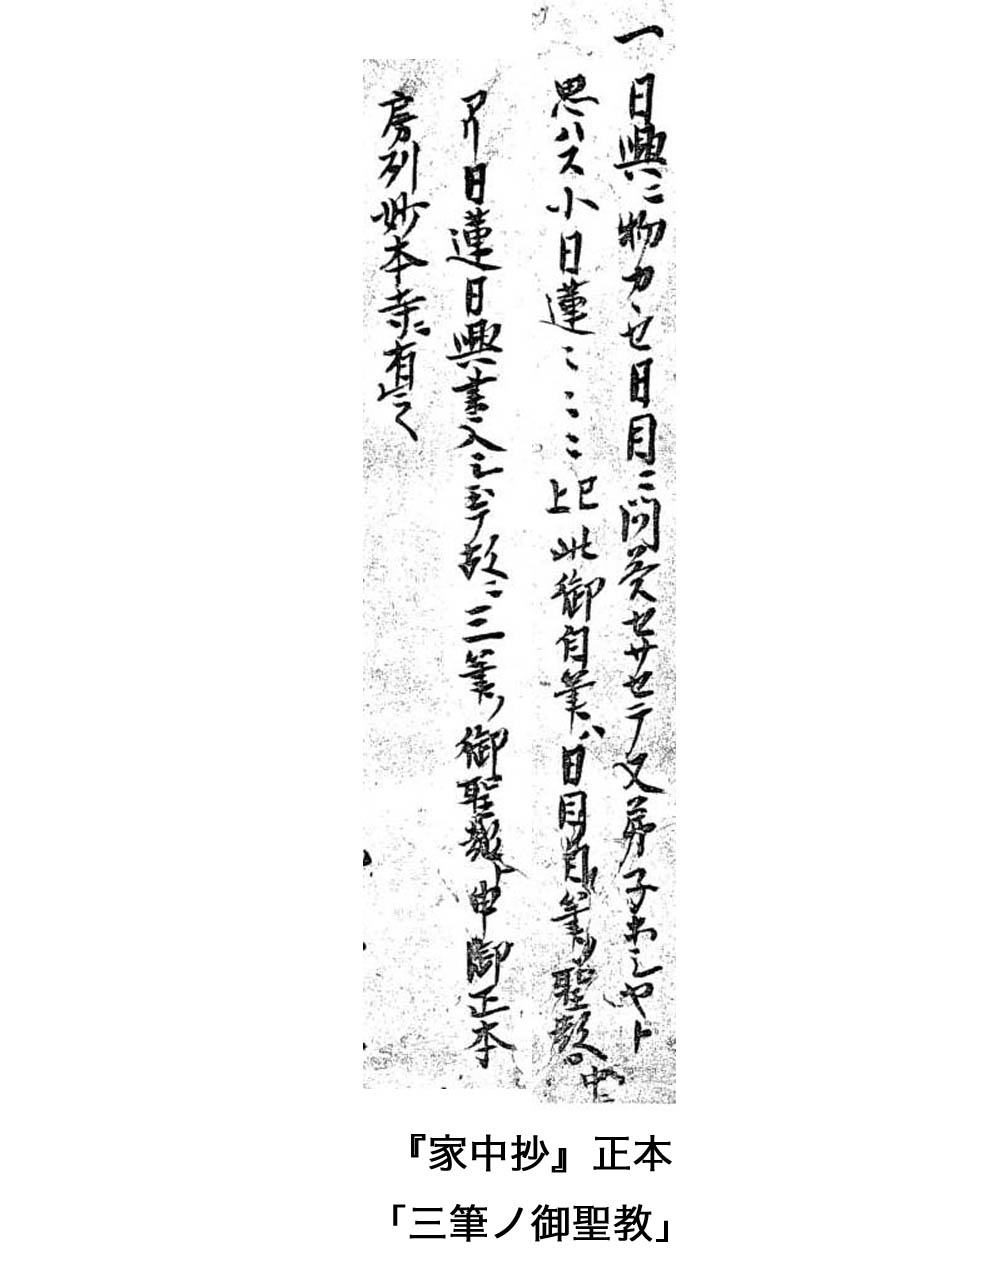 一 日興ニ物カヽせ日目ニ問答セサセテ又弟子ホシヤト
思ハス小日蓮ニニニ已上此御自筆ハ日目自筆ノ聖教ノ中ニ
アリ日蓮日興書入シ玉フ故ニ三筆ノ御聖教ト申御正本
房州妙本寺ニ有云〱
『家中抄』正本
「三筆ノ御聖教」